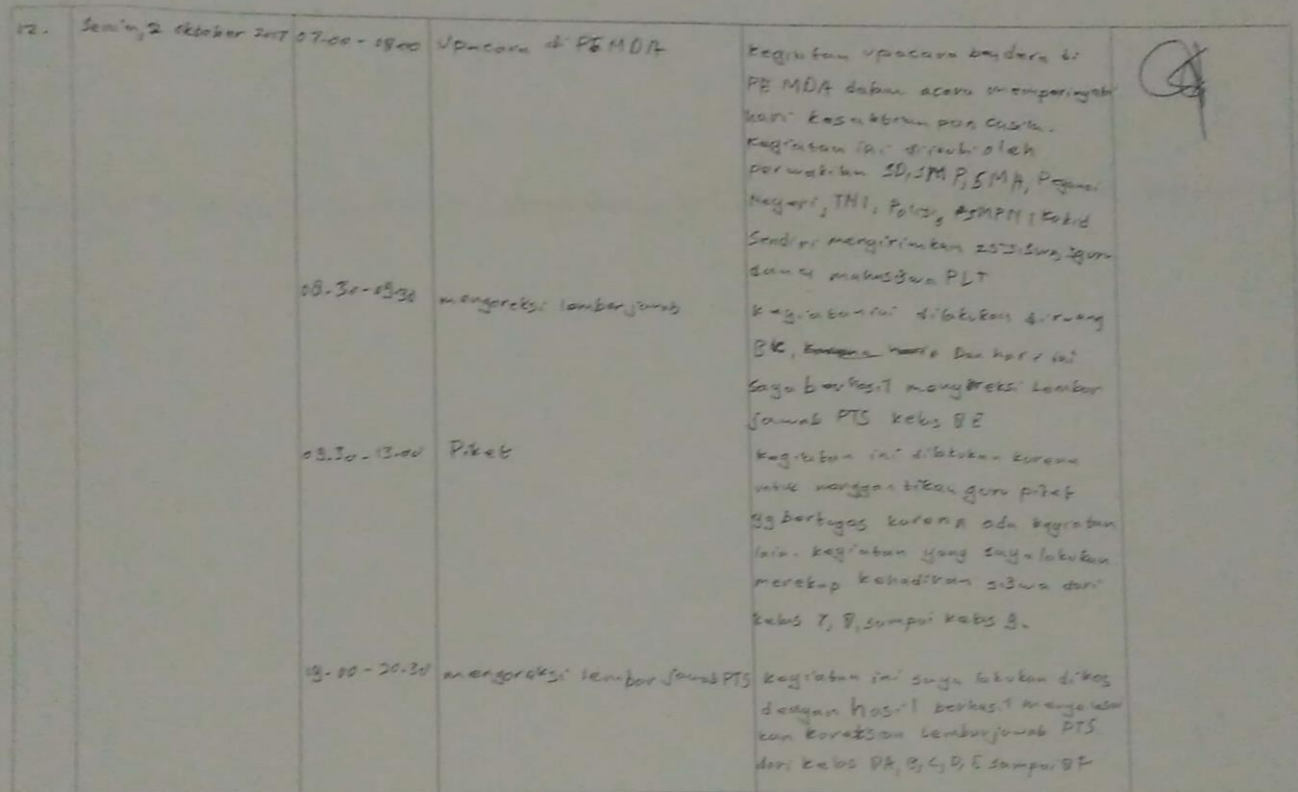 12. Senin, 2 Oktober 2017 07.00 - 08.00 Upacara di PEMDA
kegiatan upacara bendera di
PEMDA dalam acara memperingati
hari kesaktian pancasila.
kegiatan ini diikuti oleh
perwakilan SD, SMP, SMA, Pegawai
Negeri, TNI, Polisi,
Sendiri mengirimkan siswa, guru
dan 4 mahasiswa PLT
08.30 - 09.30 mengoreksi lembar jawab
kegiatan ini dilakukan diruang
BK, Dan hari ini
saya berhasil mengoreksi Lembar
jawab PTS kelas 8E
09.30 - 13.00 Piket
kegiatan ini dilakukan karena
untuk menggantikan guru piket
yg bertugas karena ada kegiatan
lain. kegiatan yang saya lakukan
merekap kehadiran siswa dari
kelas 7, 8, sampai kelas 9.
- 20.30 mengoreksi lembar jawab PTS
kegiatan ini saya lakukan dikos
dengan hasil berhasil menyelesai
kan koreksian lembar jawab PTS
dari kelas 8A, B, C, D, E sampai 8F